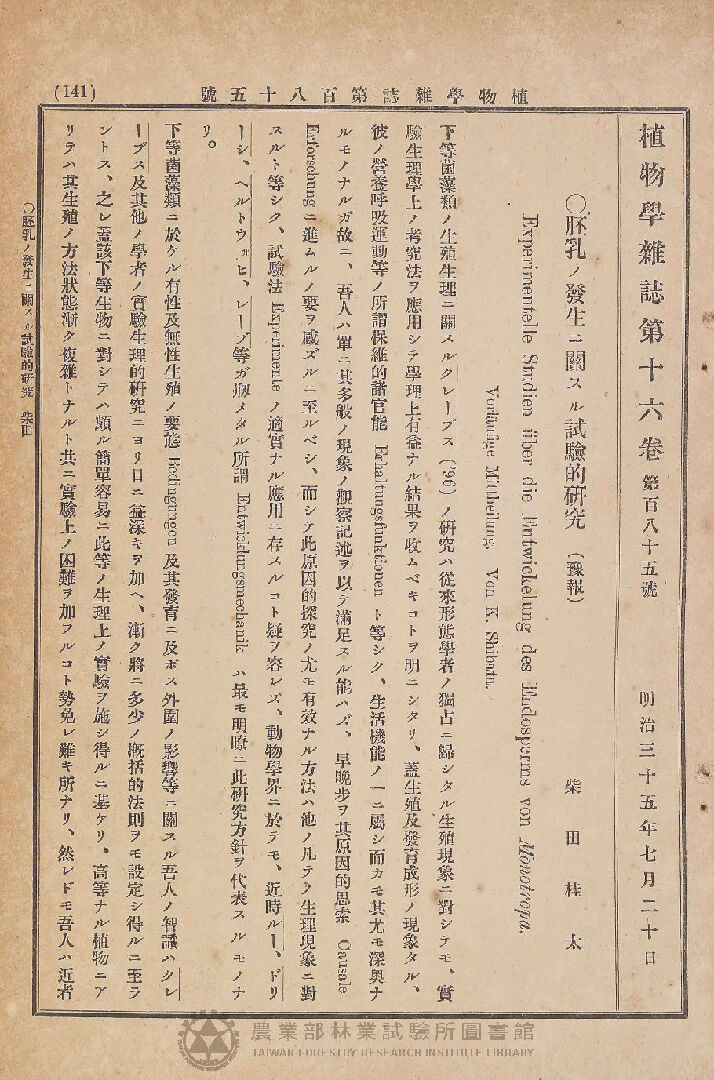 (141)
植物學雜誌第百八十五號
植物學雜誌第十六卷 第百八十五號 明治三十五年七月二十日
〇胚乳ノ發生ニ關スル試驗的硏究（豫報）
柴田桂太
Experimentelle Studien über die Entwickelung des Endosperms von Monotropa.
Vorläufige Mittheilung. Von K. Shibata.
下等菌藻類ノ生殖生理ニ關スルクレーブス（'96）ノ硏究ハ從來形態學者ノ獨占ニ歸シタル生殖現象ニ對シテモ、實
驗生理學上ノ考究法ヲ應用シテ學理上有益ナル結果ヲ收ムベキコトヲ明ニシタリ、蓋生殖及發育成形ノ現象タル、
彼ノ營養呼吸運動等ノ所謂保維的諸官能 Erhaltungsfunktionen ト等シク、生活機能ノ一ニ屬シ而カモ其尤モ深奧ナ
ルモノナルガ故ニ、吾人ハ單ニ其多般ノ現象ノ觀察記述ヲ以テ滿足スル能ハズ、早晩步ヲ其原因的思索 Causale
Erforschung ニ進ムルノ要ヲ感ズルニ至ルベシ、而シテ此原因的探究ノ尤モ有效ナル方法ハ他ノ凡テノ生理現象ニ對
スルト等シク、試驗法 Experimente ノ適實ナル應用ニ存スルコト疑ヲ容レズ、動物學界ニ於テモ、近時ルー、ドリ
ーシ、ヘルトウォヒ、レーブ等ガ極メタル所謂 Entwicklungsmechanik ハ最モ明瞭ニ此硏究方針ヲ代表スルモノナ
リ。
下等菌藻類ニ於ケル有性及無性生殖ノ要態 Bedingungen 及其發育ニ及ボス外圍ノ影響等ニ關スル吾人ノ智識ハクレ
ーブス及其他ノ學者ノ實驗生理的硏究ニヨリ日ニ益深キヲ加ヘ、漸ク將ニ多少ノ槪括的法則ヲモ設定シ得ルニ至ラ
ントス、之レ蓋該下等生物ニ對シテハ頗ル簡單容易ニ此等ノ生理上ノ實驗ヲ施シ得ルニ基ケリ、高等ナル植物ニア
リテハ其生殖ノ方法狀態漸ク複雜トナルト共ニ實驗上ノ困難ヲ加フルコト勢免レ難キ所ナリ、然レドモ吾人ハ近者
〇胚乳ノ發生ニ關スル試驗的硏究 柴田
農業部林業試驗所圖書館
TAIWAN FORESTRY RESEARCH INSTITUTE LIBRARY